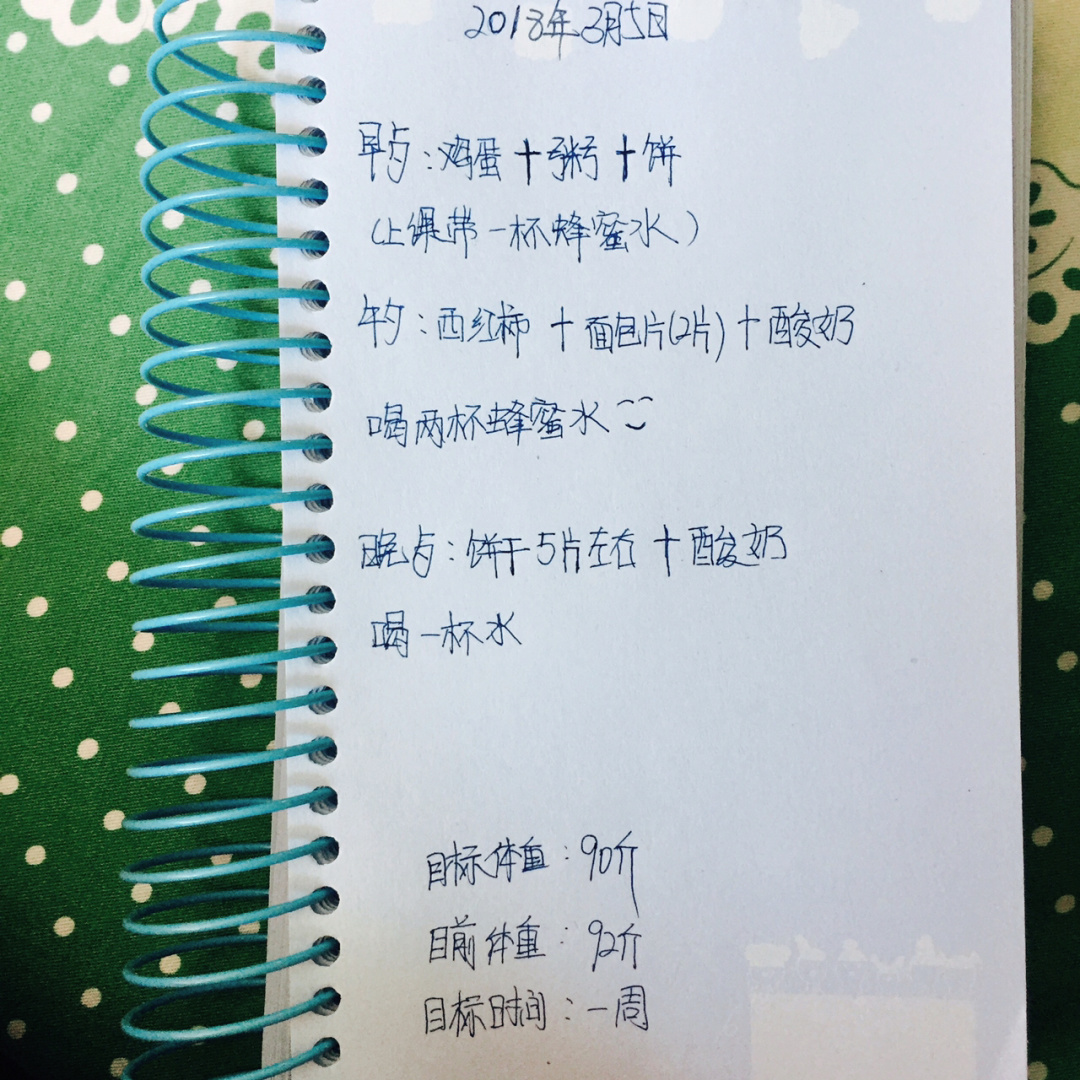 2018年3月5日
早占：鸡蛋＋粥＋饼
（上课带一杯蜂蜜水）
午夕：西红柿＋面包片（2片）＋酸奶
喝两杯蜂蜜水
晚占：饼干5片左右＋酸奶
喝一杯水
目标体重：90斤
目前体重：92斤
目标时间：一周